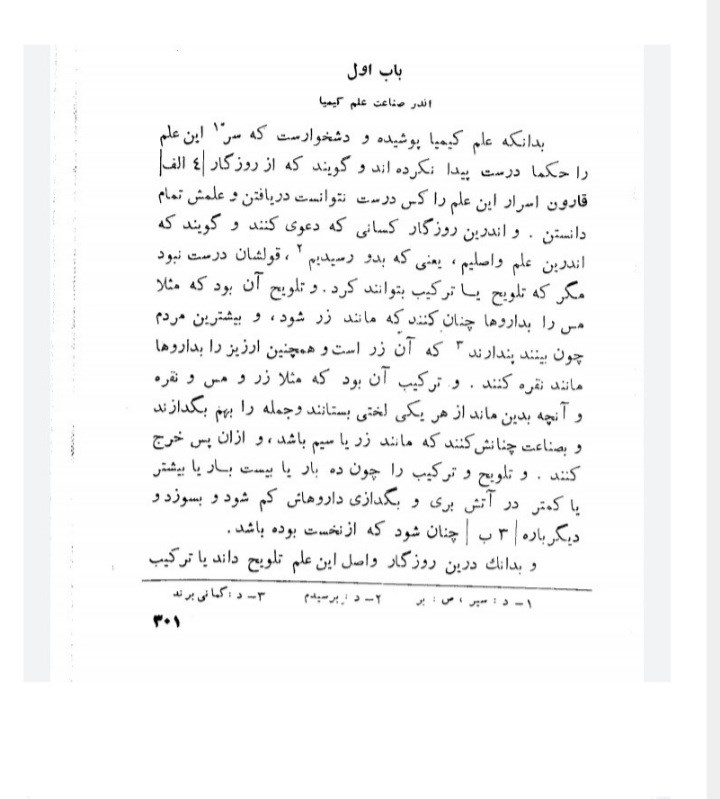 باب اول
اندر صناعت علم کیمیا
بدانکه علم کیمیا پوشیده و دشخوارست که سر۱ این علم
را حکما درست پیدا نکرده اند و گویند که از روزگار |٤ الف|
قارون اسرار این علم را کس درست نتوانست دریافتن و علمش تمام
دانستن . و اندرین روزگار کسانی که دعوی کنند و گویند که
اندرین علم واصلیم ، یعنی که بدو رسیدیم۲ ، قولشان درست نبود
مگر که تلویح یا ترکیب بتوانند کرد . و تلویح آن بود که مثلا
مس را بداروها چنان کنند که مانند زر شود ، و بیشترین مردم
چون بینند پندارند۳ که آن زر است و همچنین ارزیز را بداروها
مانند نقره کنند . و ترکیب آن بود که مثلا زر و مس و نقره
و آنچه بدین ماند از هر یکی لختی بستانند و جمله را بهم بگدازند
و بصناعت چنانش کنند که مانند زر یا سیم باشد ، و ازان پس خرج
کنند . و تلویح و ترکیب را چون ده بار یا بیست بار یا بیشتر
یا کمتر در آتش بری و بگدازی داروهاش کم شود و بسوزد و
دیگر باره |۳ ب| چنان شود که از نخست بوده باشد .
و بدانك درین روزگار واصل این علم تلویح داند یا ترکیب
۱ـ د : سیر ، ص : بر ۲ـ د : برسیدم ۳ـ د : گمانی برند
۳۰۱